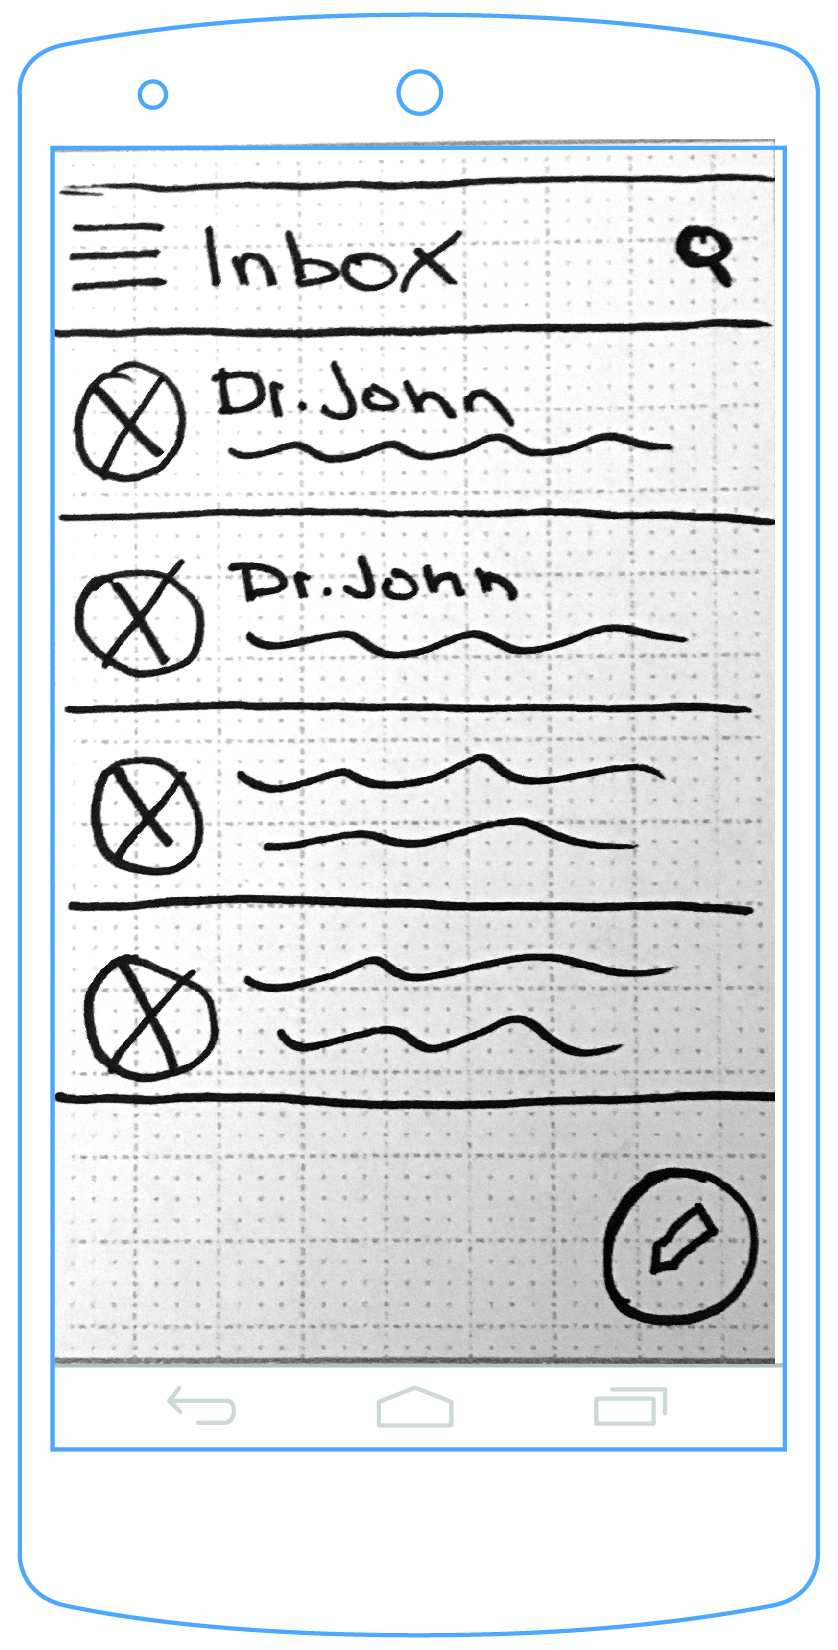 Inbox
Dr. John
Dr. John